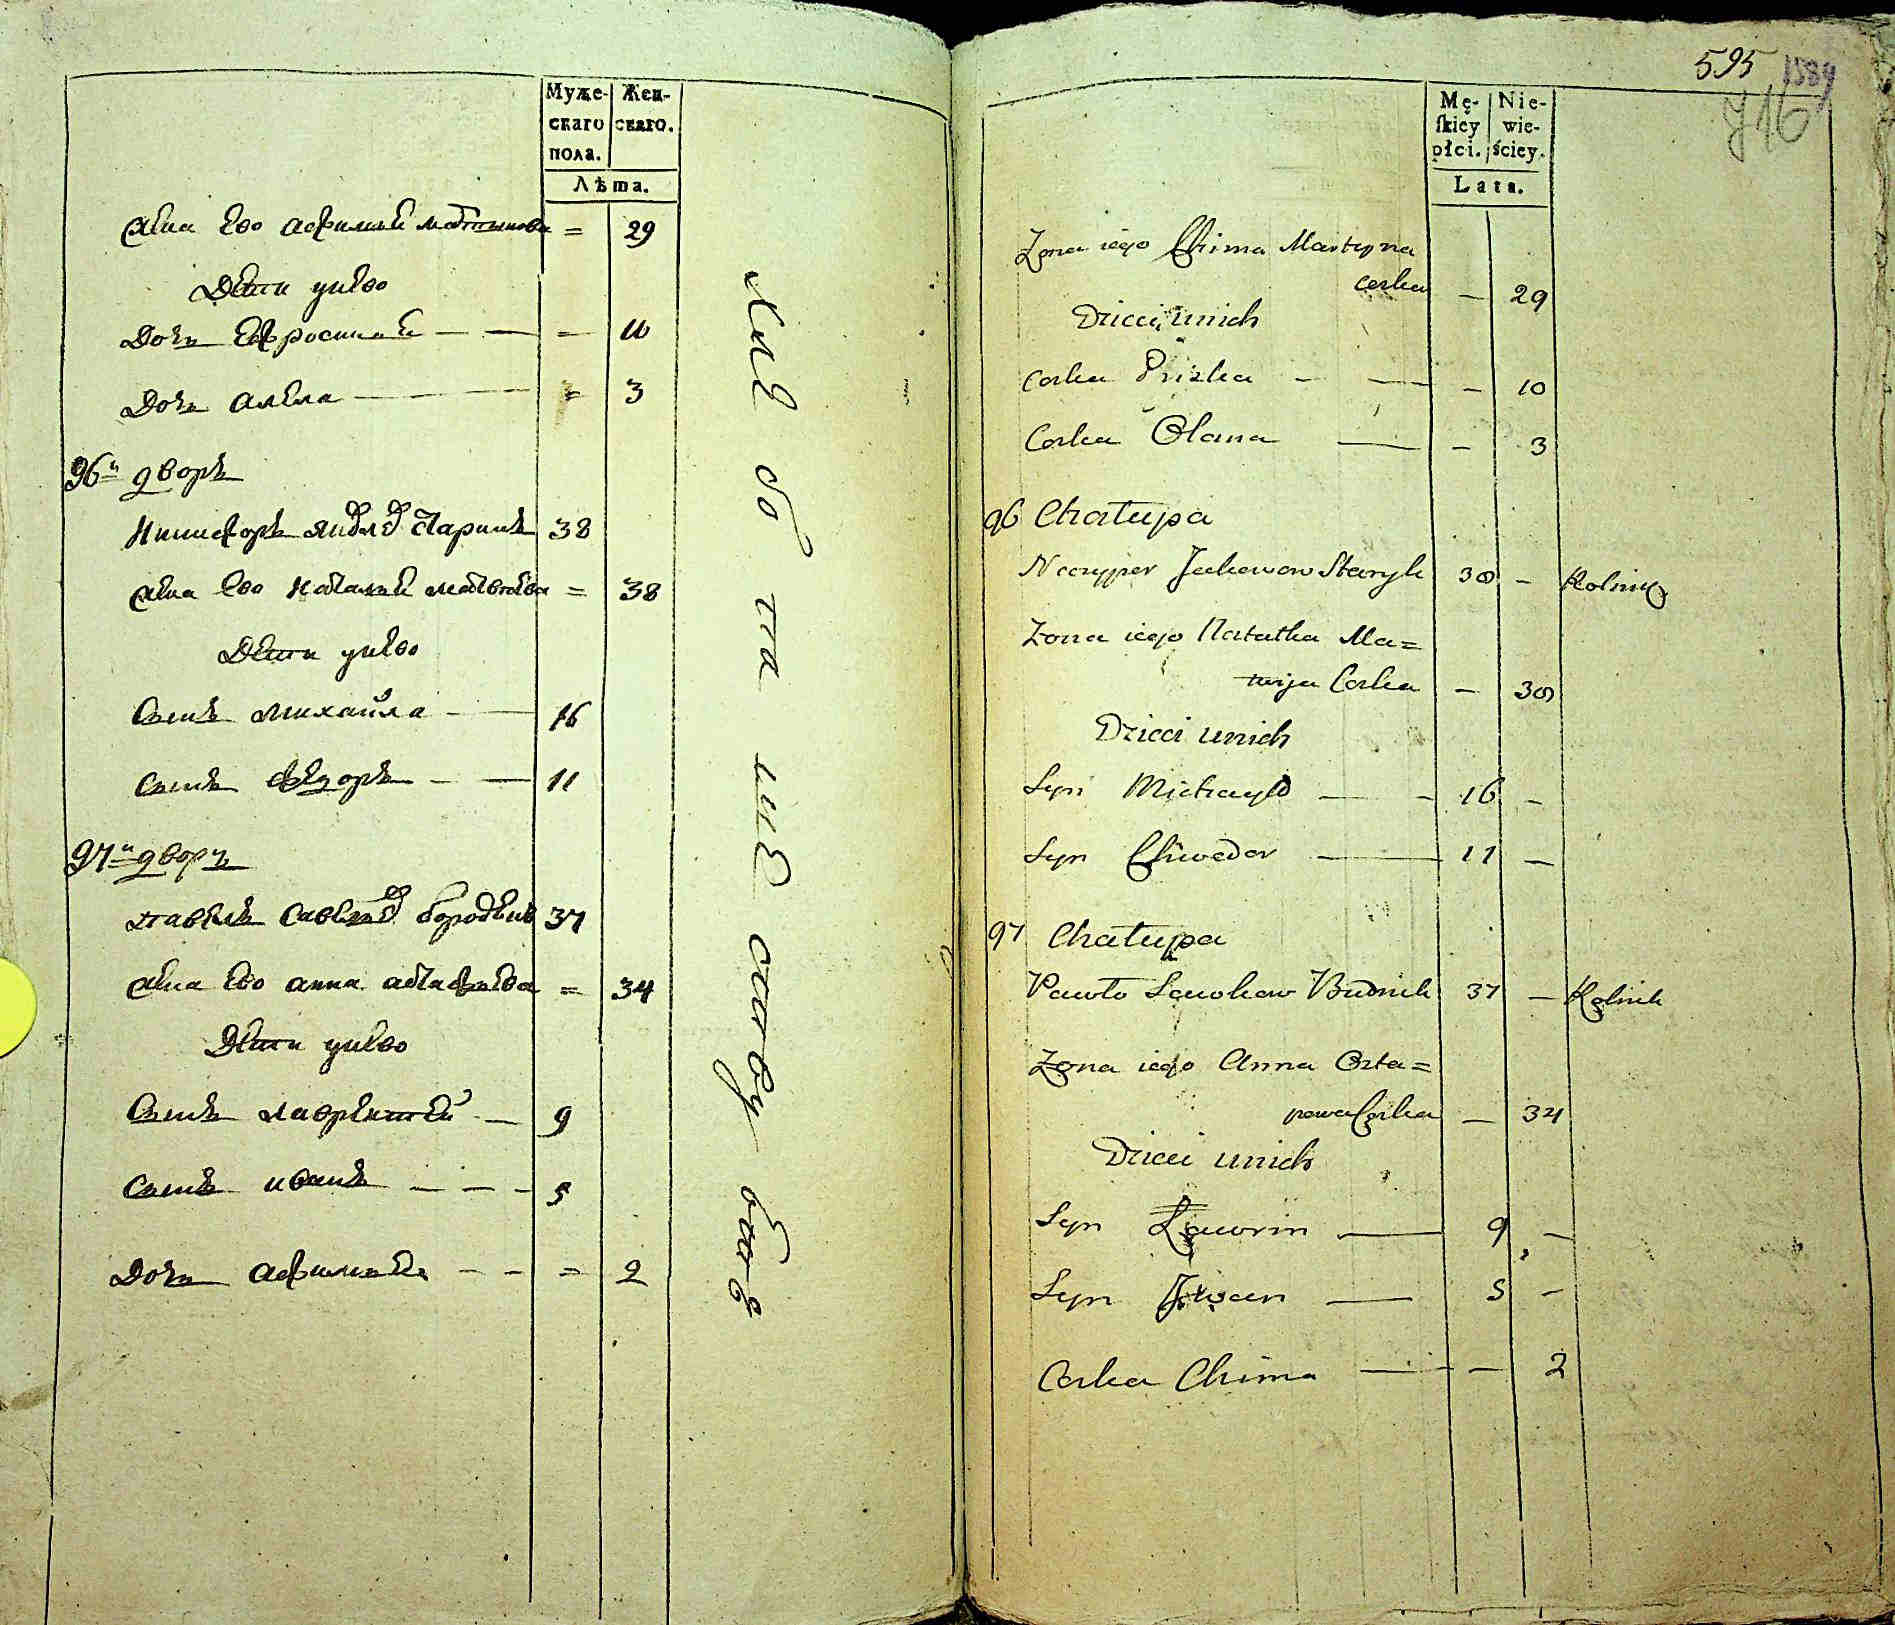 Муже- Жен-
скаго скаго.
пола.
Лѣта.
Жена Ево Афимья Мартинова = 29
Дѣти у нево
Дочь Ефросинья — — = 10
Дочь Алена — = 3
96й дворъ
Никифоръ Яковлевъ Старикъ 38
Жена Ево Наталья Матвѣева = 38
Дѣти у нево
Сынъ Михайла — 16
Сынъ Федоръ — — 11
97й дворъ
Павелъ Савельевъ 37
Жена Ево Анна Астафьева = 34
Дѣти у нево
Сынъ Лаврентей — 9
Сынъ Иванъ — — — 5
Дочь Афимья — — = 2
595 1589
716
Mę- Nie-
skiey wie-
płci. ściey.
Lata.
Zona iego Chima Martyna
corka — 29
Dzieci unich
Corka Priska — — — 10
Corka Olana — — 3
96 Chałupa
Niczyper Jakowow Staryk 38 — Rolnik
Zona iego Natałka Ma=
twija Corka — 38
Dzieci unich
Syn Michayło — — 16 —
Syn Chwedor — 11 —
97 Chałupa
Pawło Sawkow Budnik 37 — Rolnik
Zona iego Anna Osta=
powa Corka — 34
Dzieci unich
Syn Ławrin — 9 —
Syn Jwan — 5 —
Corka Chima — — 2